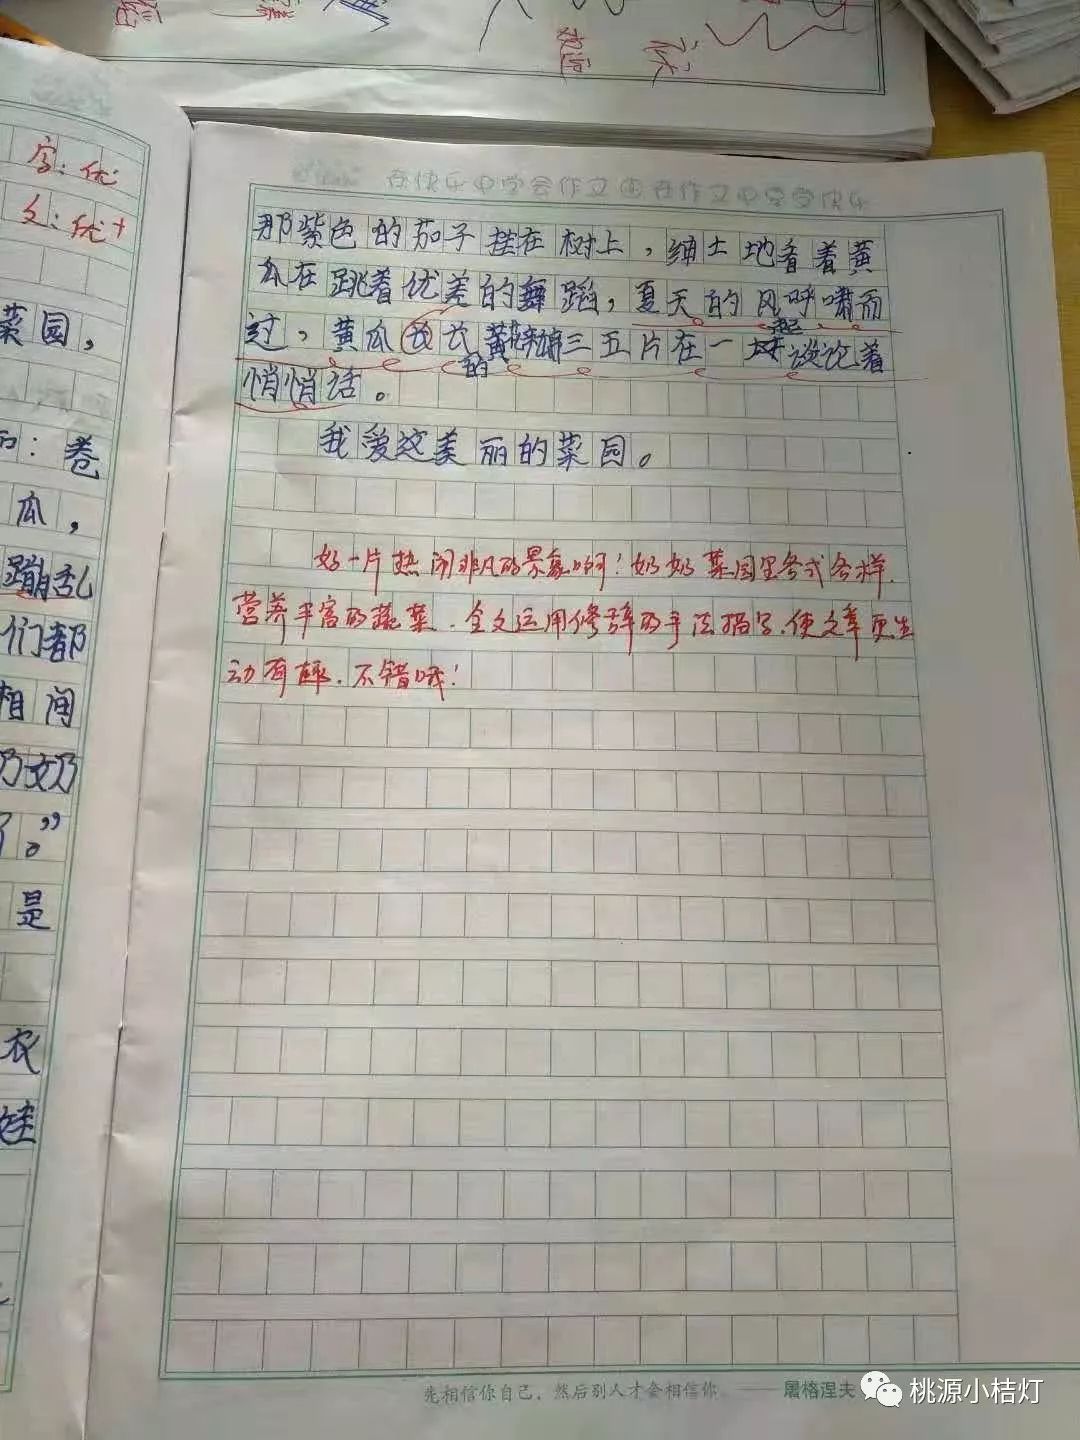 欢迎
字：优
文：优+
菜园，
：卷
瓜，
蹦乱
们都
相间
奶
。”
是
衣
娃
在快乐中学会作文 在作文中享受快乐
那紫色的茄子挂在树上，绅士地看着黄
瓜在跳着优差的舞蹈，夏天的风呼啸而
过，黄瓜 长黄 三五片在一起谈论着
的
悄悄话。
我爱这美丽的菜园。
好一片热闹非凡的景象啊！奶奶菜园里各式各样
营养丰富的蔬菜．全文运用修辞的手法描写．使文章更生
动有趣．不错哦！
先相信你自己，然后别人才会相信你 ——屠格涅夫
桃源小桔灯